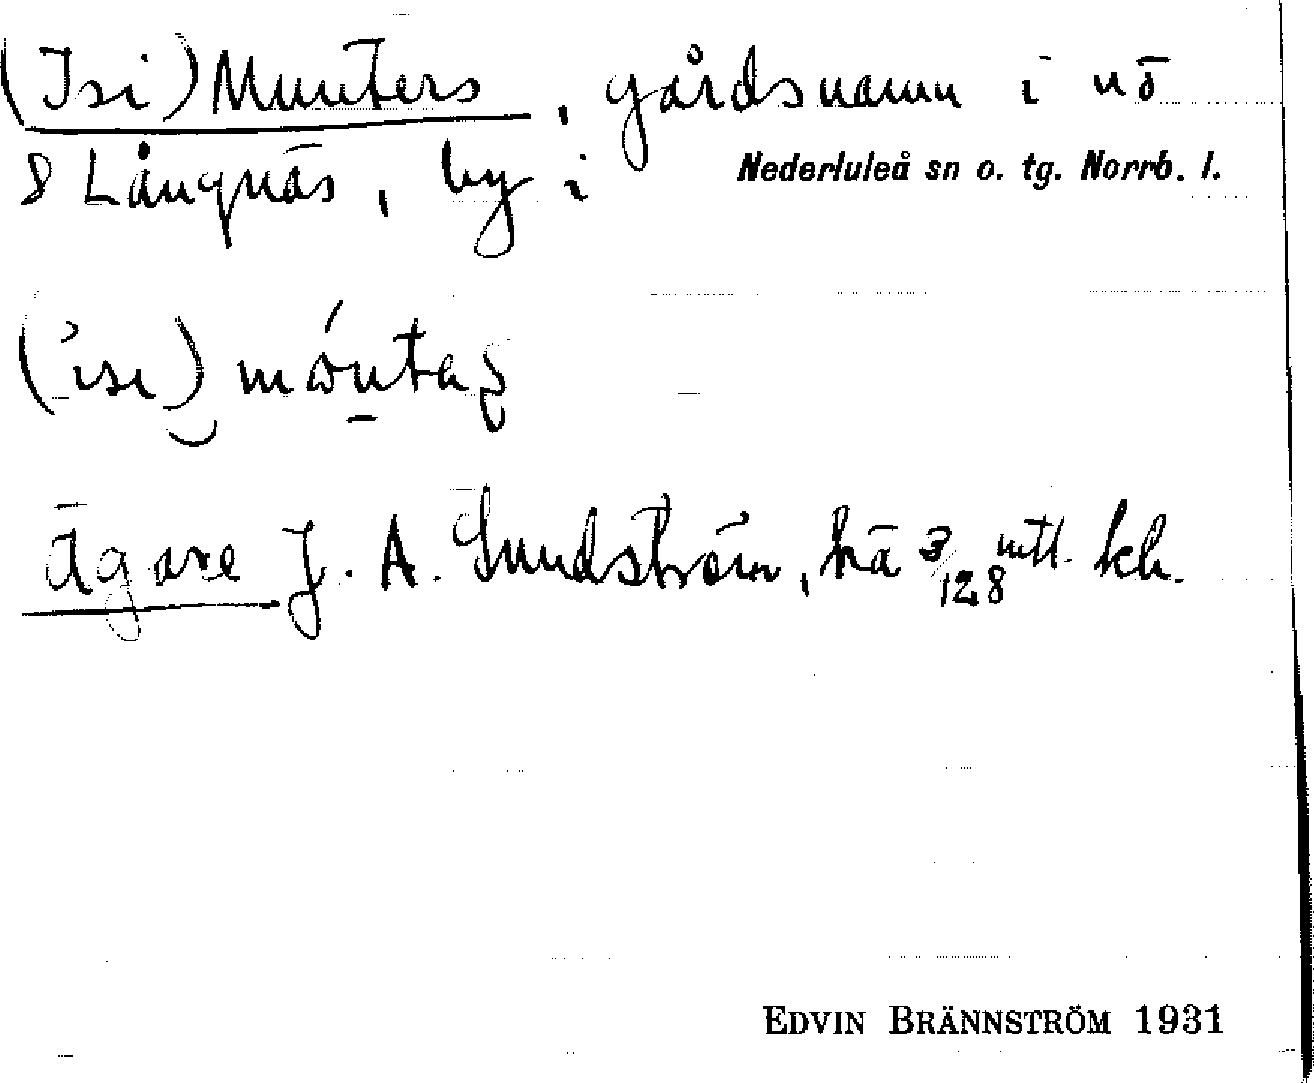 (Isi) Munters, gårdsnamn i nö
8 Långnäs, by i Nederluleå sn o. tg. Norrb. l.
ägare J. A. Sundström, hä 3/128 mtl. kh.
EDVIN BRÄNNSTRÖM 1931